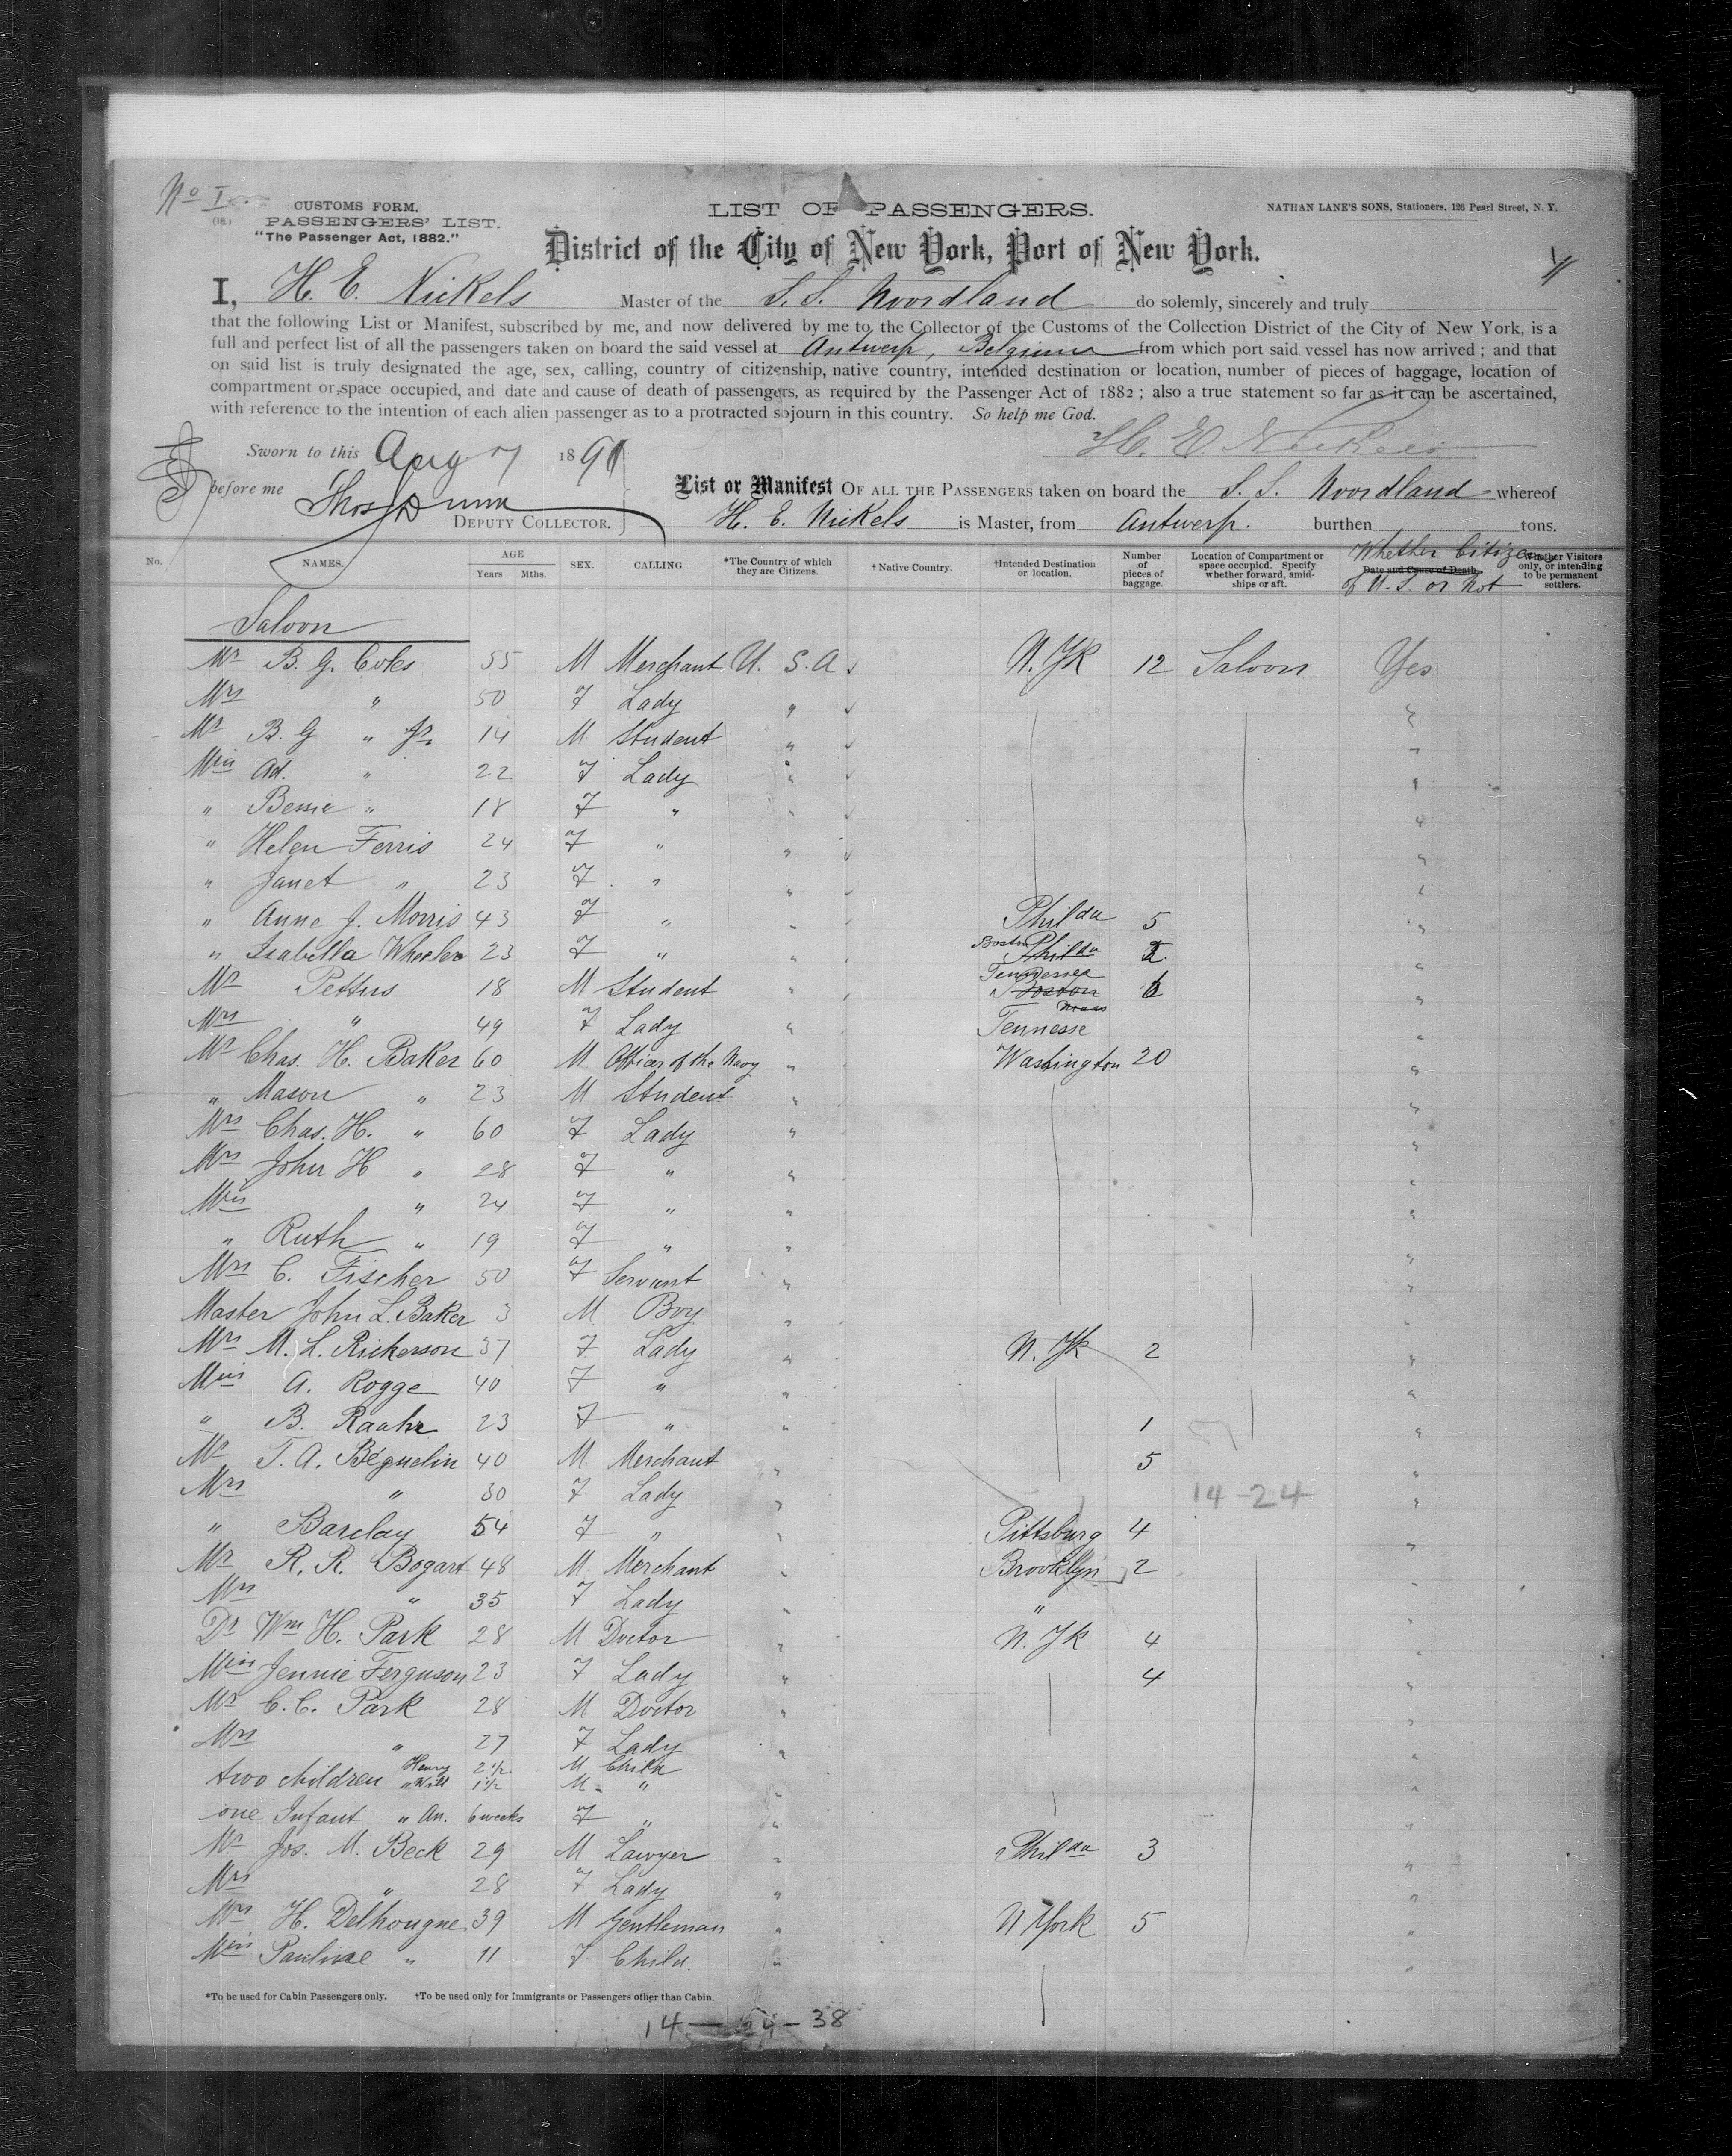 No I.
CUSTOMS FORM.
(18.) PASSENGERS' LIST.
"The Passenger Act, 1882."
LIST OF PASSENGERS.
NATHAN LANE'S SONS, Stationers, 126 Pearl Street, N. Y.
District of the City of New York, Port of New York.
I, H. E. Nickels Master of the S.S. Noordland do solemnly, sincerely and truly
that the following List or Manifest, subscribed by me, and now delivered by me to the Collector of the Customs of the Collection District of the City of New York, is a
full and perfect list of all the passengers taken on board the said vessel at Antwerp, Belgium from which port said vessel has now arrived; and that
on said list is truly designated the age, sex, calling, country of citizenship, native country, intended destination or location, number of pieces of baggage, location of
compartment or space occupied, and date and cause of death of passengers, as required by the Passenger Act of 1882; also a true statement so far as it can be ascertained,
with reference to the intention of each alien passenger as to a protracted sojourn in this country. So help me God.
H. E. Nickels
Sworn to this Aug 7 1891
before me Thos Dunn
DEPUTY COLLECTOR.
List or Manifest OF ALL THE PASSENGERS taken on board the S. S. Noordland whereof
H. E. Nickels is Master, from Antwerp. burthen tons.
No. NAMES. AGE Years Mths. SEX. CALLING *The Country of which they are Citizens. †Native Country. †Intended Destination or location. Number of pieces of baggage. Location of Compartment or space occupied. Specify whether forward, amidships or aft. Date and Cause of Death. Whether Citizens of U. S. or Not Whether Visitors only, or intending to be permanent settlers.
Saloon
Mr B. G. Coles 55 M Merchant U. S. A N. Yk 12 Saloon Yes
Mrs " 50 F Lady " "
Mr B. G " Jr. 14 M Student " "
Miss Ad. " 22 F Lady " "
" Bessie " 18 F " " "
" Helen Ferris 24 F " " "
" Janet " 23 F " " "
" Anne J. Morris 43 F " " Philda 5 "
" Isabella Wheeler 23 F " " Boston Philda 2 "
Mr Pettus 18 M Student " Tennessee Boston Mass 6 "
Mrs " 49 F Lady " Tennesse "
Mr Chas. H. Baker 60 M Officer of the Navy " Washington 20 "
" Mason " 23 M Student " "
Mrs Chas. H. " 60 F Lady " "
Mrs John H " 28 F " " "
Miss " 24 F " " "
" Ruth " 19 F " " "
Mrs C. Fischer 50 F Servant " "
Master John L. Baker 3 M Boy " "
Mrs M. L. Rickerson 37 F Lady " N. Yk 2 "
Miss A. Rogge 40 F " " "
" B. Raahr 23 F " " 1 "
Mr T. A. Béguelin 40 M Merchant " 5 "
Mrs " 30 F Lady " 14-24 "
" Barclay 54 F " " Pittsburg 4 "
Mr R. R. Bogart 48 M Merchant " Brooklyn 2 "
Mrs " 35 F Lady " " "
Dr Wm H. Park 28 M Doctor " N. Yk 4 "
Miss Jennie Ferguson 23 F Lady " 4 "
Mr C. C. Park 28 M Doctor " "
Mrs " 27 F Lady " "
two children Henry 2 1/2 M Child
" Will 1 1/2 M "
one Infant " An. 6 weeks F " " "
Mr Jos. M. Beck 29 M Lawyer " Philda 3 "
Mrs " 28 F Lady " "
Mrs H. Delhougne 39 M Gentleman " N York 5 "
Miss Pauline " 11 F Child. " "
*To be used for Cabin Passengers only. †To be used only for Immigrants or Passengers other than Cabin.
14 — 24 — 38